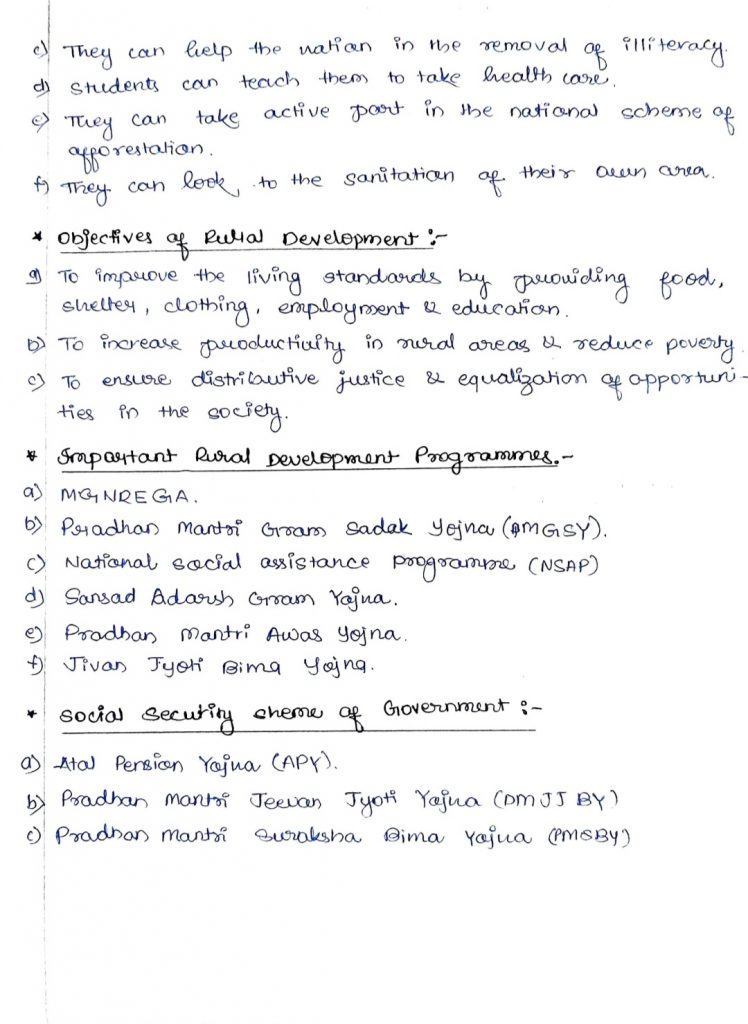 c) They can help the nation in the removal of illiteracy.
d) Students can teach them to take health care.
e) They can take active part in the national scheme of
afforestation.
f) They can look to the sanitation of their own area.
* Objectives of Rural Development :-
a) To improve the living standards by providing food,
shelter, clothing, employment & education.
b) To increase productivity in rural areas & reduce poverty.
c) To ensure distributive justice & equalization of opportuni-
ties in the society.
* Important Rural Development Programmes.-
a) MGNREGA.
b) Pradhan Mantri Gram Sadak Yojna (PMGSY).
c) National social assistance programme (NSAP)
d) Sansad Adarsh Gram Yojna.
e) Pradhan Mantri Awas Yojna.
f) Jivan Jyoti Bima Yojna.
* Social Security sheme of Government :-
a) Atal Pension Yojna (APY).
b) Pradhan Mantri Jeevan Jyoti Yojna (PMJJBY)
c) Pradhan Mantri Suraksha Bima Yojna (PMSBY)